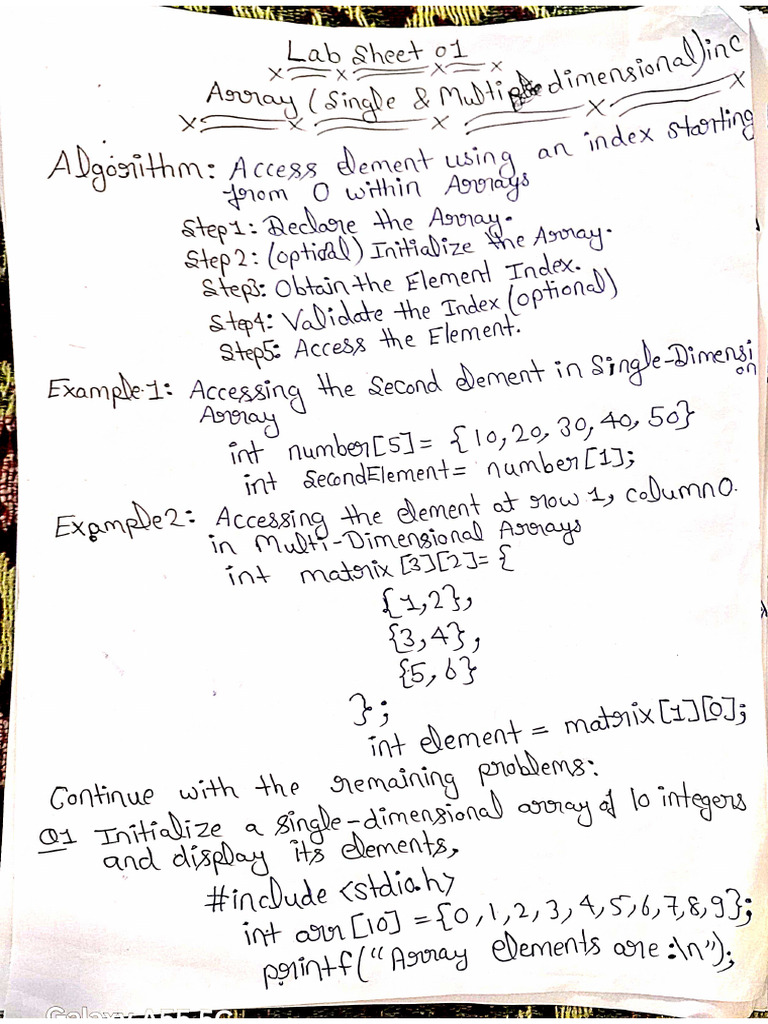 Lab Sheet 01
Array (Single & Multi dimensional) in C
Algorithm: Access element using an index starting
from 0 within Arrays
Step1: Declare the Array.
Step2: (optional) Initialize the Array.
Step3: Obtain the Element Index.
Step4: Validate the Index (optional)
Step5: Access the Element.
Example-1: Accessing the second element in Single-Dimension
Array
int number[5] = {10, 20, 30, 40, 50}
int SecondElement = number[1];
Example2: Accessing the element at row 1, column 0.
in Multi-Dimensional Arrays
int matrix [3][2] = {
{1,2},
{3,4},
{5,6}
};
int element = matrix[1][0];
Continue with the remaining problems:
Q1 Initialize a single-dimensional array of 10 integers
and display its elements,
#include <stdio.h>
int arr[10] = {0,1,2,3,4,5,6,7,8,9};
printf("Array elements are:\n");
Galaxy A55 5G